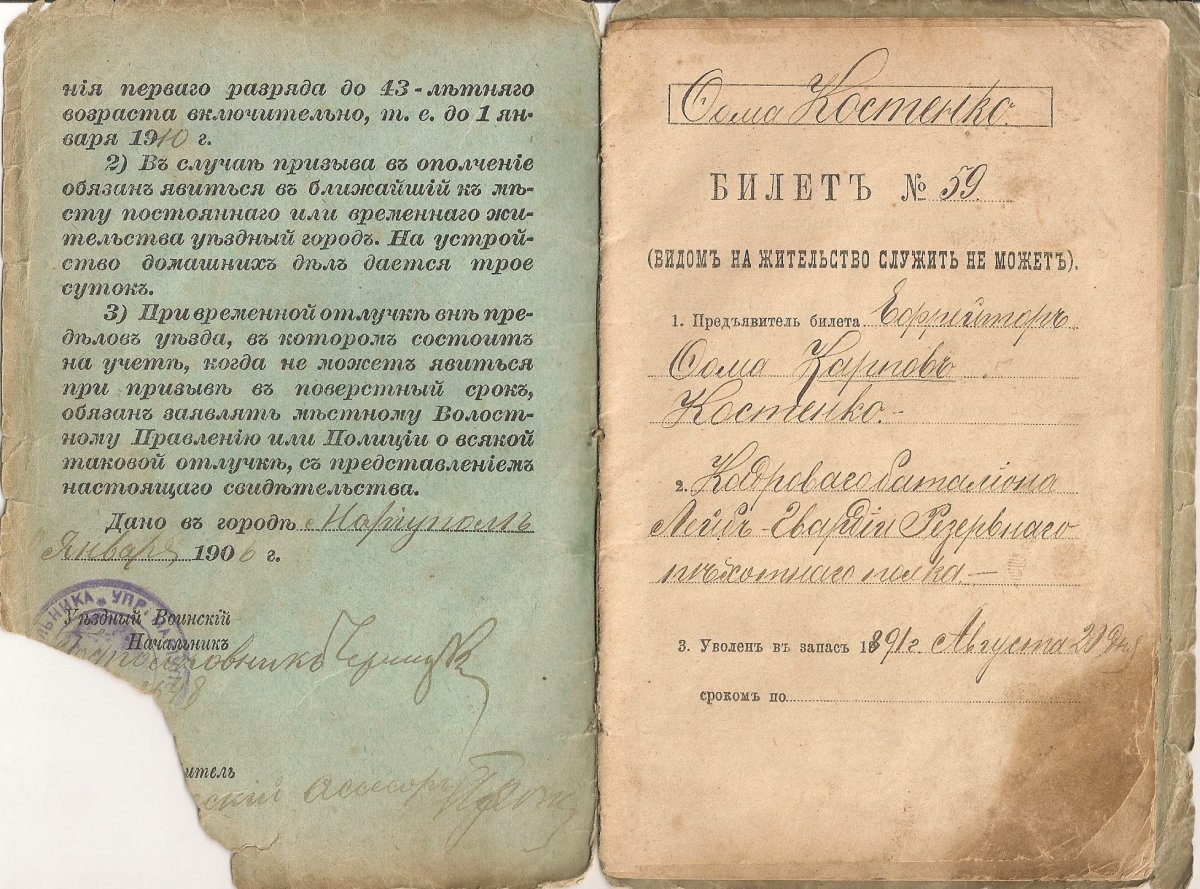 нія перваго разряда до 43-лѣтняго
возраста включительно, т. е. до 1 ян-
варя 1910 г.
2) Въ случаѣ призыва въ ополченіе
обязанъ явиться въ ближайшій къ мѣ-
сту постояннаго или временнаго жи-
тельства уѣздный городъ. На устрой-
ство домашнихъ дѣлъ дается трое
сутокъ.
3) При временной отлучкѣ внѣ пре-
дѣловъ уѣзда, въ которомъ состоитъ
на учетѣ, когда не можетъ явиться
при призывѣ въ поверстный срокъ,
обязанъ заявлять мѣстному Волост-
ному Правленію или Полиціи о всякой
таковой отлучкѣ, съ представленіемъ
настоящаго свидѣтельства.
Дано въ городѣ Маріуполѣ
Января 1906 г.
ЛЬНИКА УПР.
Уѣздный Воинскій
Начальникъ
итель
Ѳома Костенко.
БИЛЕТЪ № 59
(ВИДОМЪ НА ЖИТЕЛЬСТВО СЛУЖИТЬ НЕ МОЖЕТЪ).
1. Предъявитель билета Ефрейторъ
Ѳома Карповъ
Костенко.-
2. Кадроваго баталіона
Лейбъ-Гвардіи Резервнаго
пѣхотнаго полка-
3. Уволенъ въ запасъ 1891 г Августа 20 дня
срокомъ по